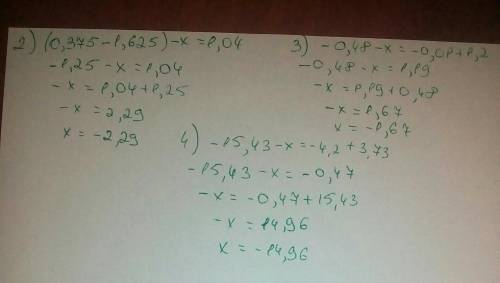 2) (0,375-1,625)-x=1,04
-1,25-x=1,04
-x=1,04+1,25
-x=2,29
x=-2,29
3) -0,48-x=-0,01+1,2
-0,48-x=1,19
-x=1,19+0,48
-x=1,67
x=-1,67
4) -15,43-x=-4,2+3,73
-15,43-x=-0,47
-x=-0,47+15,43
-x=14,96
x=-14,96